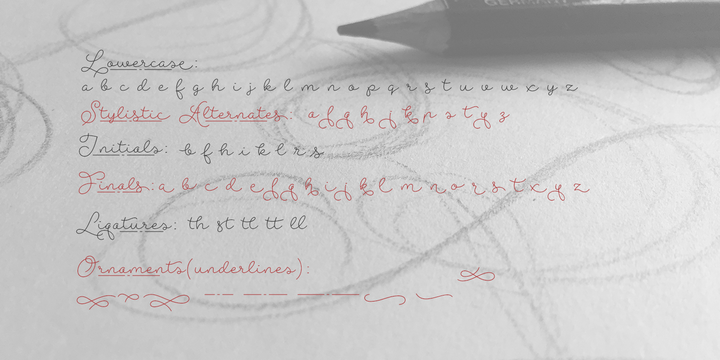 GERMANY
Lowercase:
a b c d e f g h i j k l m n o p q r s t u v w x y z
Stylistic Alternates: a f g h j k n s t y z
Initials: b f h i k l r s
Finals: a b c d e f g h i j k l m n o r s t x y z
Ligatures: th st tl tt ll
Ornaments(underlines):